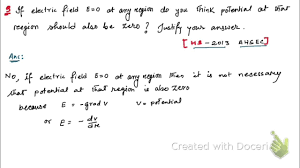 Q If electric field E=0 at any region do you think potential at that
region should also be zero? Justify your answer.
[HS-2013 AHSEC]
Ans:
No, If electric field E=0 at any region then it is not necessary
that potential at that region is also zero
because E = -grad V V = potential
or E = - dv/dx
Created with Doceri